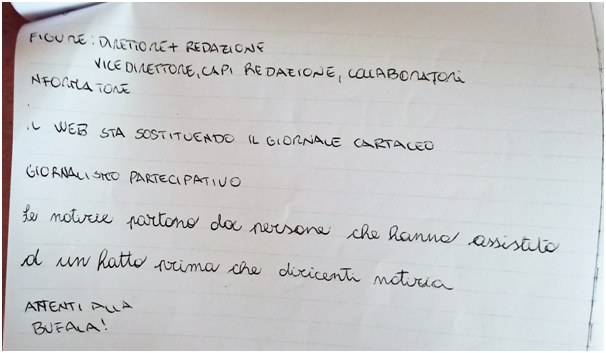 FIGURE: DIRETTORE + REDAZIONE
VICE DIRETTORE, CAPI REDAZIONE, COLLABORATORI
NFORMATORE
IL WEB STA SOSTITUENDO IL GIORNALE CARTACEO
GIORNALISMO PARTECIPATIVO
Le notizie partono da persone che hanno assistito
ad un fatto prima che diventi notizia
ATTENTI ALLA
BUFALA!